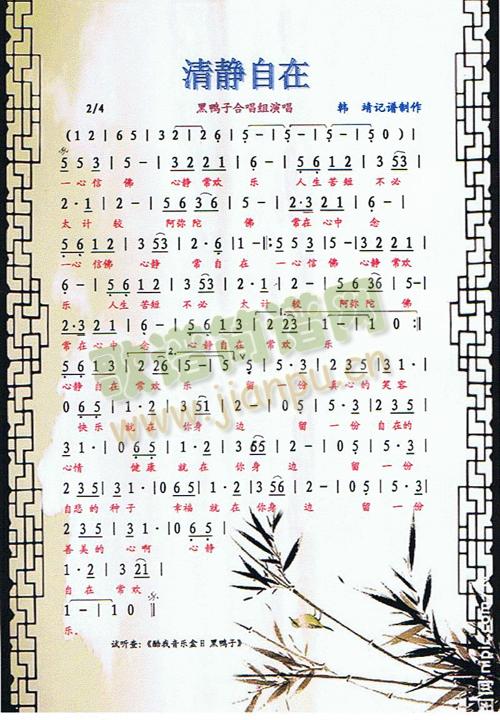 清静自在
2/4 黑鸭子合唱组演唱 韩 靖记谱制作
(1 2 | 6 5 | 3 2 | 2 6 | 6 - | 5 - | 5 - | 5 0 ) |
5 5 3 | 5 - | 3 2 2 1 | 6 - | 5 6 1 2 | 3 5 3 |
一心信 佛 心静 常欢 乐 人生 苦短 不必
2 · 1 | 2 - | 5 6 3 6 | 5 - | 2 · 3 2 1 | 6 - |
太计 较 阿弥 陀 佛 常在 心中 念
5 6 1 2 | 3 5 3 | 2 · 6 | 1 - :| 5 5 3 | 5 - | 3 2 2 1 |
一心 信佛 心静 常 自 在 一心信 佛 心静 常欢
6 - | 5 6 1 2 | 3 5 3 | 2 · 1 | 2 - | 5 6 3 6 | 5 - |
乐 人生 苦短 不必 太计 较 阿弥 陀 佛
2 · 3 2 1 | 6 - | 5 6 1 3 | 2 2 3 | 1 - | 1 0 :|
常在 心中 念 心静 自在 常欢 乐
5 6 1 3 | 2 2 6 | 5 - | 5 - | 5 5 | 3 5 1 |
心静 自在 常欢 乐 留 一份 真心的 笑容
0 6 5 | 1 · 3 | 3 5 1 | 2 - | 0 5 | 5 · 3 | 2 3 5 |
快乐 就在 你身 边 留 一份 自在的
3 1 · | 0 6 5 | 1 · 2 | 3 6 5 | 2 - | 0 5 | 5 · 3 |
心情 健康 就在 你身 边 留 一份
2 3 5 | 3 1 · | 0 6 5 | 1 · 2 | 3 5 6 | 2 - | 0 5 | 5 · 3 |
自悲的 种子 幸福 就在 你身 边 留 一份
2 3 5 | 3 1 · | 0 6 5 |
善美的 心啊 心静
1 · 2 | 3 2 1 |
自在 常欢
1 - | 1 0 ||
乐.
试听金:《酷我音乐盒日 黑鸭子》
歌谱简谱网
www.jianpu.cn